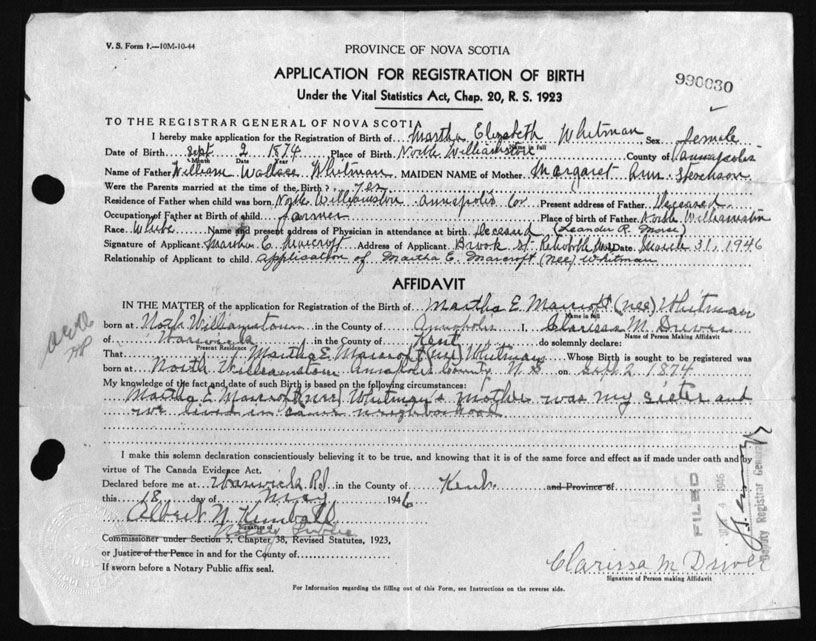 V. S. Form 1.—10M-10-44
PROVINCE OF NOVA SCOTIA
APPLICATION FOR REGISTRATION OF BIRTH
990030
Under the Vital Statistics Act, Chap. 20, R. S. 1923
TO THE REGISTRAR GENERAL OF NOVA SCOTIA
I hereby make application for the Registration of Birth of Martha Elizabeth Whitman Sex female
Name in full
Date of Birth Sept 2 1874 Place of Birth North Williamston County of Annapolis
Month Date Year
Name of Father William Wallace Whitman MAIDEN NAME of Mother Margaret Ann Stevenson
Were the Parents married at the time of the Birth? yes
Residence of Father when child was born North Williamston Annapolis Co Present address of Father Deceased
Occupation of Father at Birth of child farmer Place of birth of Father North Williamston
Race White Name and present address of Physician in attendance at birth Deceased (Leander R. Morse)
Signature of Applicant Martha E. Marcroft Address of Applicant Brook St Rehoboth Mass Date March 31, 1946
Relationship of Applicant to child Application of Martha E. Marcroft (nee) Whitman
AFFIDAVIT
IN THE MATTER of the application for Registration of the Birth of Martha E Marcroft (nee) Whitman
Name in full
born at North Williamstown in the County of Annapolis I, Clarissa M. Driver
Name of Person Making Affidavit
of Warwick in the County of Kent do solemnly declare:
Present Residence
That Martha E. Marcroft (nee) Whitman Whose Birth is sought to be registered was
born at North Williamston Annapolis County N. S. on Sept. 2 1874
My knowledge of the fact and date of such Birth is based on the following circumstances:
Martha E Marcroft (nee) Whitman's mother was my sister and
we lived in same neighborhood
I make this solemn declaration conscientiously believing it to be true, and knowing that it is of the same force and effect as if made under oath and by
virtue of The Canada Evidence Act.
Declared before me at Warwick RI in the County of Kent and Province of
this 18 day of May 1946
Albert N Kimball
Signature of
Notary Public
Commissioner under Section 3, Chapter 38, Revised Statutes, 1923,
or Justice of the Peace in and for the County of
If sworn before a Notary Public affix seal.
FILED
Deputy Registrar General
Clarissa M Driver
Signature of Person making Affidavit
For Information regarding the filling out of this Form, see Instructions on the reverse side.